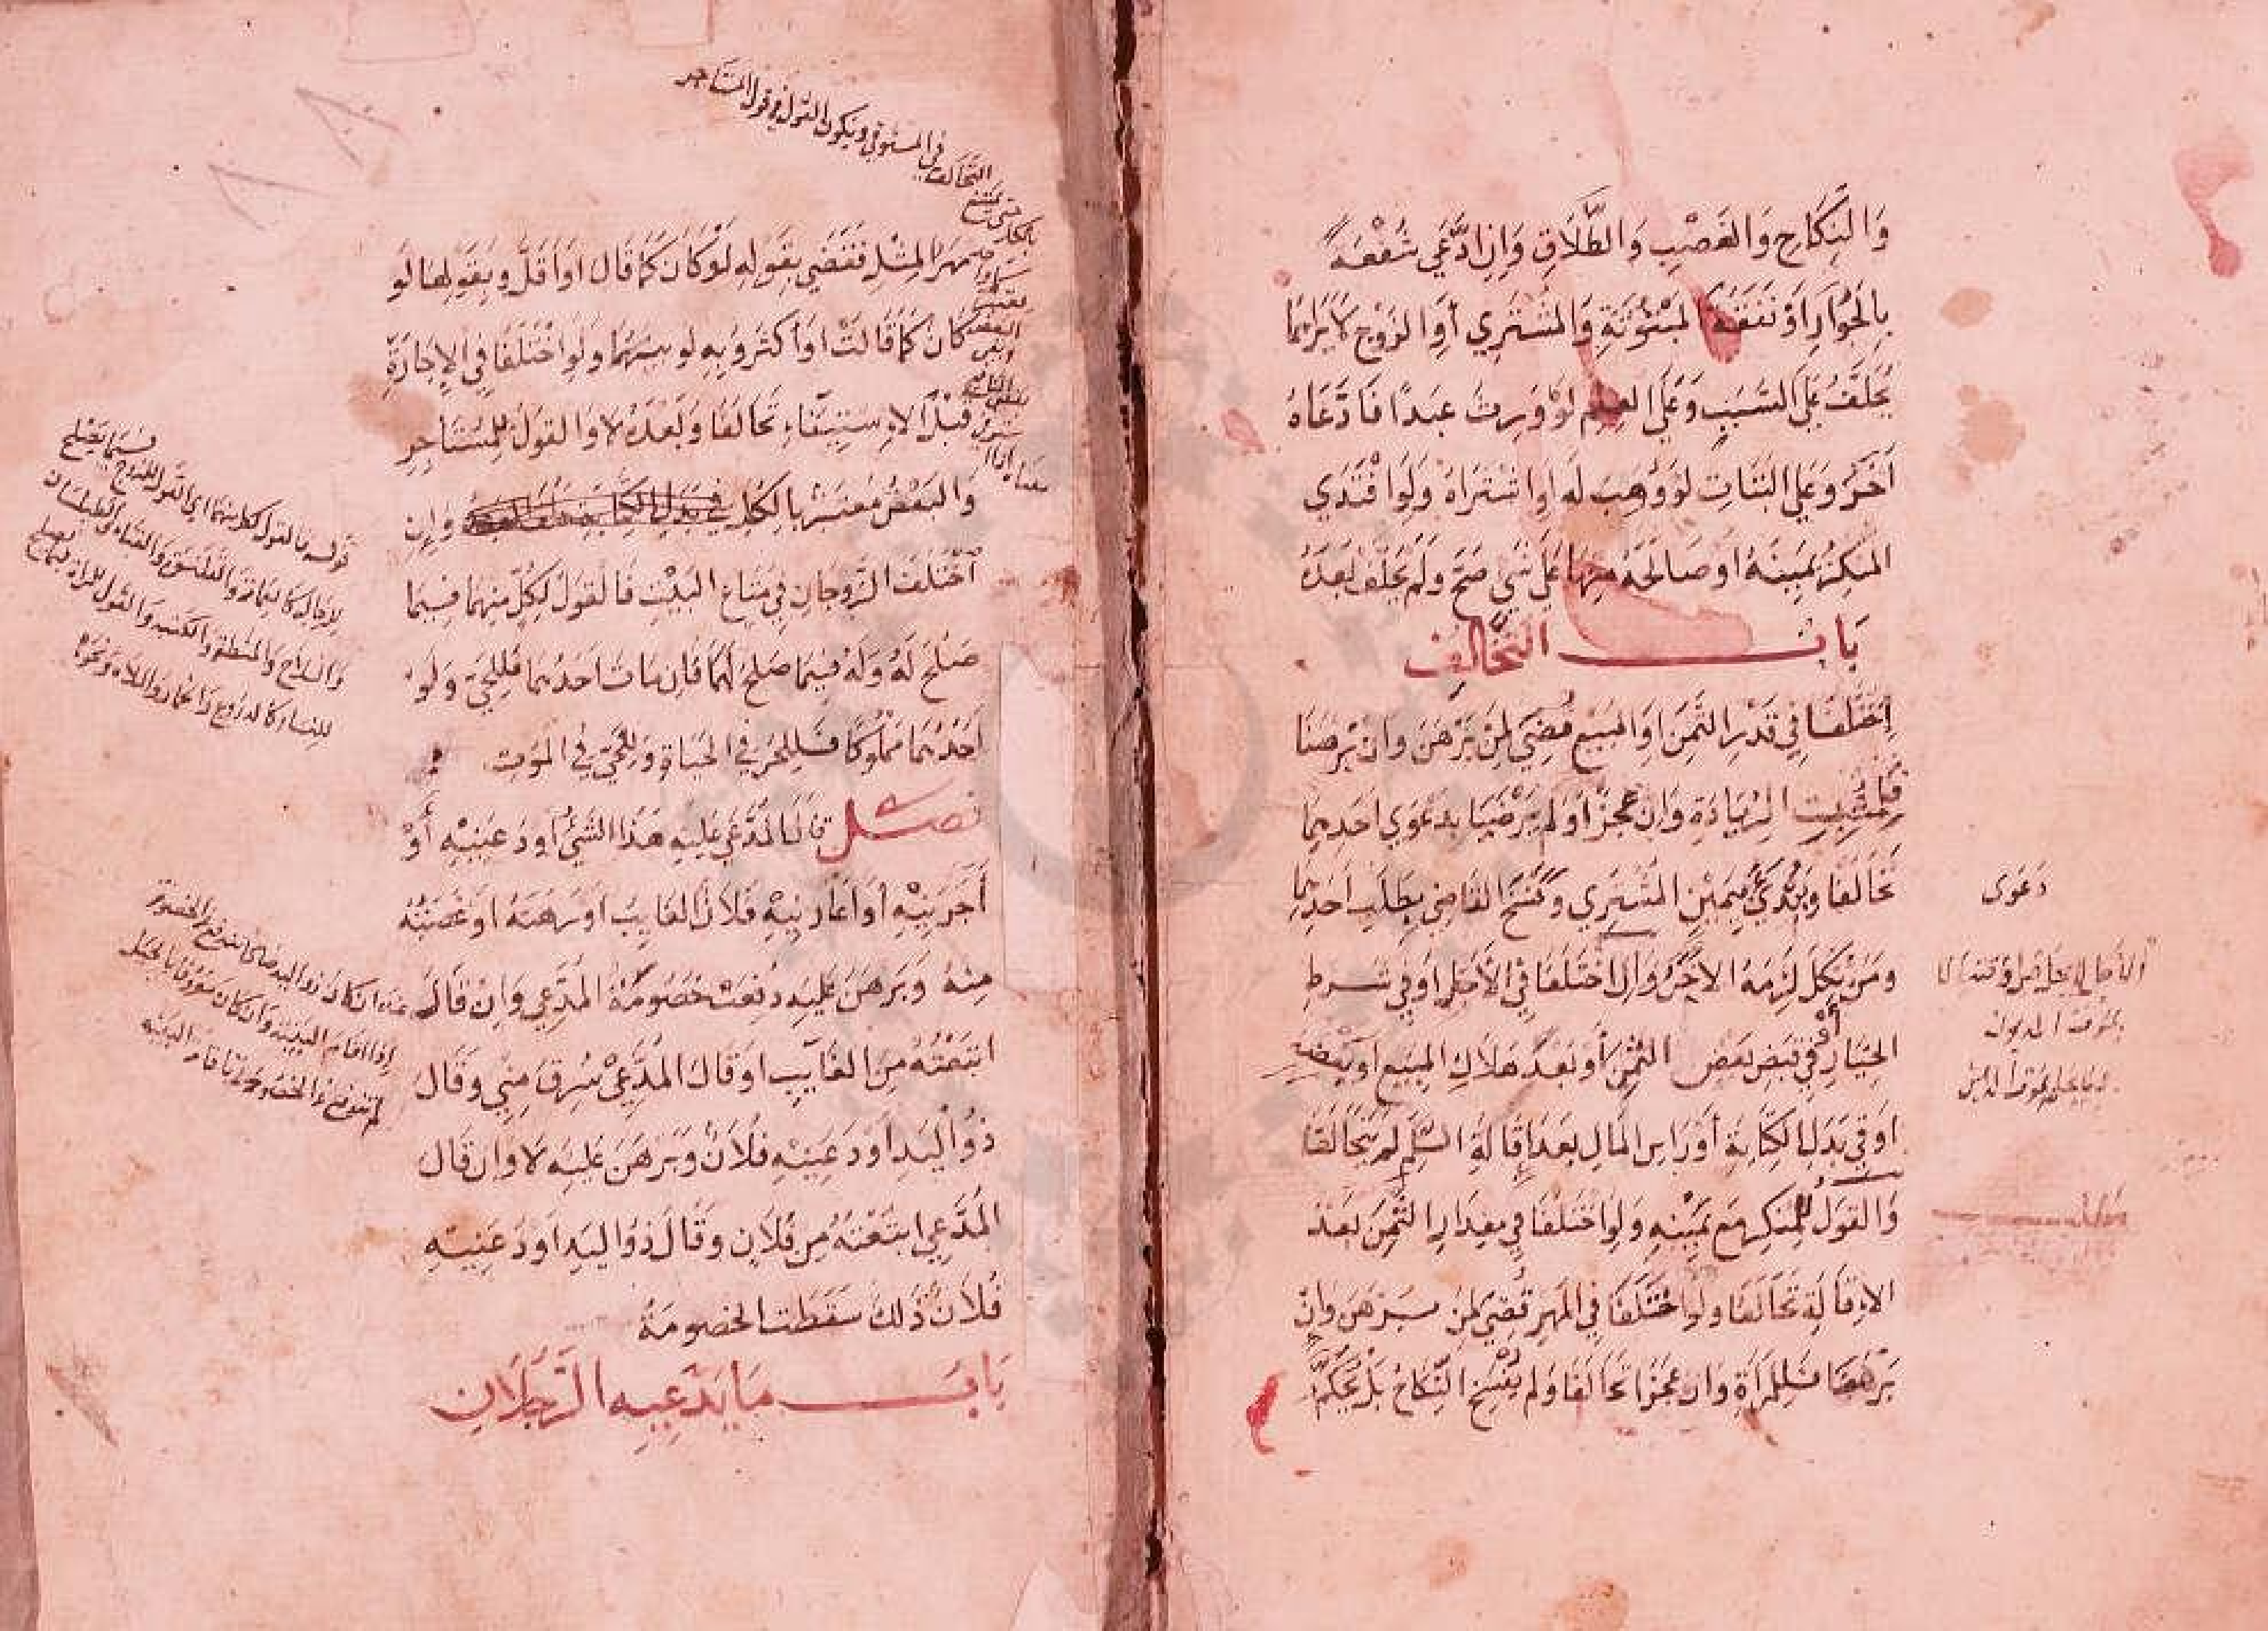 وَالنِّكَاحِ وَالغَصْبِ وَالطَّلَاقِ وَاِنِ ادَّعَى شُفْعَةً
بِالجُوَارِ اَوْ نَفَقَةَ المَبْتُوتَةِ وَالمُشْتَرِي أَوِ الزَوْج لاَ يَرَاهَا
يُحَلَّفُ عَلَى السَّبَبِ وَعَلَى العِلْمِ لَوْ وَرِثَ عَبدًا فَادَّعَاهُ
اَخَرُ وَعَلَى البَتَاتِ لَوْ وُهِبَ لَهُ اَوِ اشْتَرَاهُ وَلَوِ افْتَدَى
المُنكِرُ يَمِينَهُ اَوْ صَالَحَهُ مِنهَا عَلَى شَيٍ صَحَّ وَلَمْ يُحَلَّفْ بَعدَهُ
بَابُ التَّحَالُفِ
اِخْتَلَفَا فِي قَدْرِ الثَّمَنِ اَوِ المَبِيعِ قُضِيَ لِمَنْ بَرْهَنَ وَاِنْ بَرْهَنَا
فَلِمُثْبِتِ الزِيَادَةِ وَاِنْ عَجَزَا وَلَمْ يَرْضَيَا بِدَعْوَى اَحَدِهِمَا
تَحَالَفَا وَبُدِئَ بِيَمِيْنِ المُشْتَرِي وَفَسَخَ القَاضِي بِطَلَبِ اَحَدِهِمَا
وَمَنْ نَكَلَ لَزِمَهُ الاخَرُ وَاِنِ اخْتَلَفَا فِي الاَجَلِ اَوْ فِي شَرطِ
الخِيَارِ أَوْ فِي قَبْضِ بَعضِ الثَّمَنِ أَوْ بَعْدَ هَلَاكِ المَبِيعِ اَوْ بَعْضِهِ
اَوْ فِي بَدَلِ الكِتَابَةِ أَوْ رَاسِ المَالِ بَعدَ اِقَالَةِ السَّلَمِ لَمْ يَتَحَالَفَا
وَالقَولُ لِلمُنكِرِ مَعَ يَمِيْنِهِ وَلَوِ اخْتَلَفَا فِي مِقدَارِ الثَّمَنِ بَعدَ
الاِقَالَةِ تَحَالَفَا وَلَوِ اخْتَلَفَا فِي المَهرِ قُضِيَ لِمَنْ بَرْهَنَ وَاِنْ
بَرْهَنَا فَلِلمَرأةِ وَاِن عَجَزَا تَحَالَفَا وَلَم يُفْسَخِ النِّكَاحُ بَلْ يُحَكَّمُ
دَعْوَى
مَهرُ المِثْلِ فَقَضَى بِقَولِهِ لَوْ كَانَ كَمَا قَالَ اَوْ اَقَلَّ وَبِقَولِهَا لَو
كَانَ كَمَا قَالَتْ اَوْ أَكثَرَ وَبِهِ لَو بَينَهُمَا وَلَوِ اخْتَلَفَا فِي الاِجَارَةِ
قَبْلَ الاِستِيفَاءِ تَحَالَفَا وَبَعْدَهُ لاَ وَالقَولُ لِلمُسْتَاجِرِ
وَالبَعْضُ مُعتَبَرٌ بِالكُلِّ وَاِنِ
اخْتَلَفَ الزَّوجَانِ فِي مَتَاعِ البَيْتِ فَالقَولُ لِكُلٍّ مِنهُمَا فِيمَا
صَلُحَ لَهُ وَلَهُ فِيمَا صَلُحَ لَهُمَا فَاِن مَاتَ اَحَدُهُمَا فَلِلحَيِّ وَلَو
اَحَدُهُمَا مَمْلُوكًا فَلِلحُرِّ فِي الحَيَاةِ وَلِلحَيِّ فِي المَوتِ
فَصْل قَالَ المُدَّعَى عَلَيهِ هَذَا الشَّيْءُ اَودَعَنِيْهِ أَوْ
أَجَرَنِيْهِ أَوْ أَعَارَنِيْهِ فُلَانٌ الغَايِبُ اَوْ رَهَنَهُ اَوْ غَصَبْتُهُ
مِنهُ وَبَرهَنَ عَلَيهِ دُفِعَتْ خُصُومَةُ المُدَّعِي وَاِنْ قَالَ
ابْتَعْتُهُ مِنَ الغَايِبِ اَوْ قَالَ المُدَّعِي سُرِقَ مِنِّي وَقَالَ
ذُو اليَدِ اَودَعَنِيْهِ فُلَانٌ وَبَرهَنَ عَلَيهِ لاَ وَاِن قَالَ
المُدَّعِي ابْتَعْتُهُ مِن فُلَانٍ وَقَالَ ذُو اليَدِ اَودَعَنِيهِ
فُلَانٌ ذَلِكَ سَقَطَتِ الخُصُومَةُ
بَابُ مَا يَدَّعِيهِ الرَّجُلَانِ
التحالف في المستوفى ويكون القول فيه قول المستاجر
قوله فالقول لكل منهما اي القول للزوج فيما يصلح
للرجال كالعمامة والقلنسوة والقباء والطيلسان
والسلاح والمنطقة والكتب والقول للمراة فيما يصلح
للنساء كالدروع والخمار والملاة ونحوها